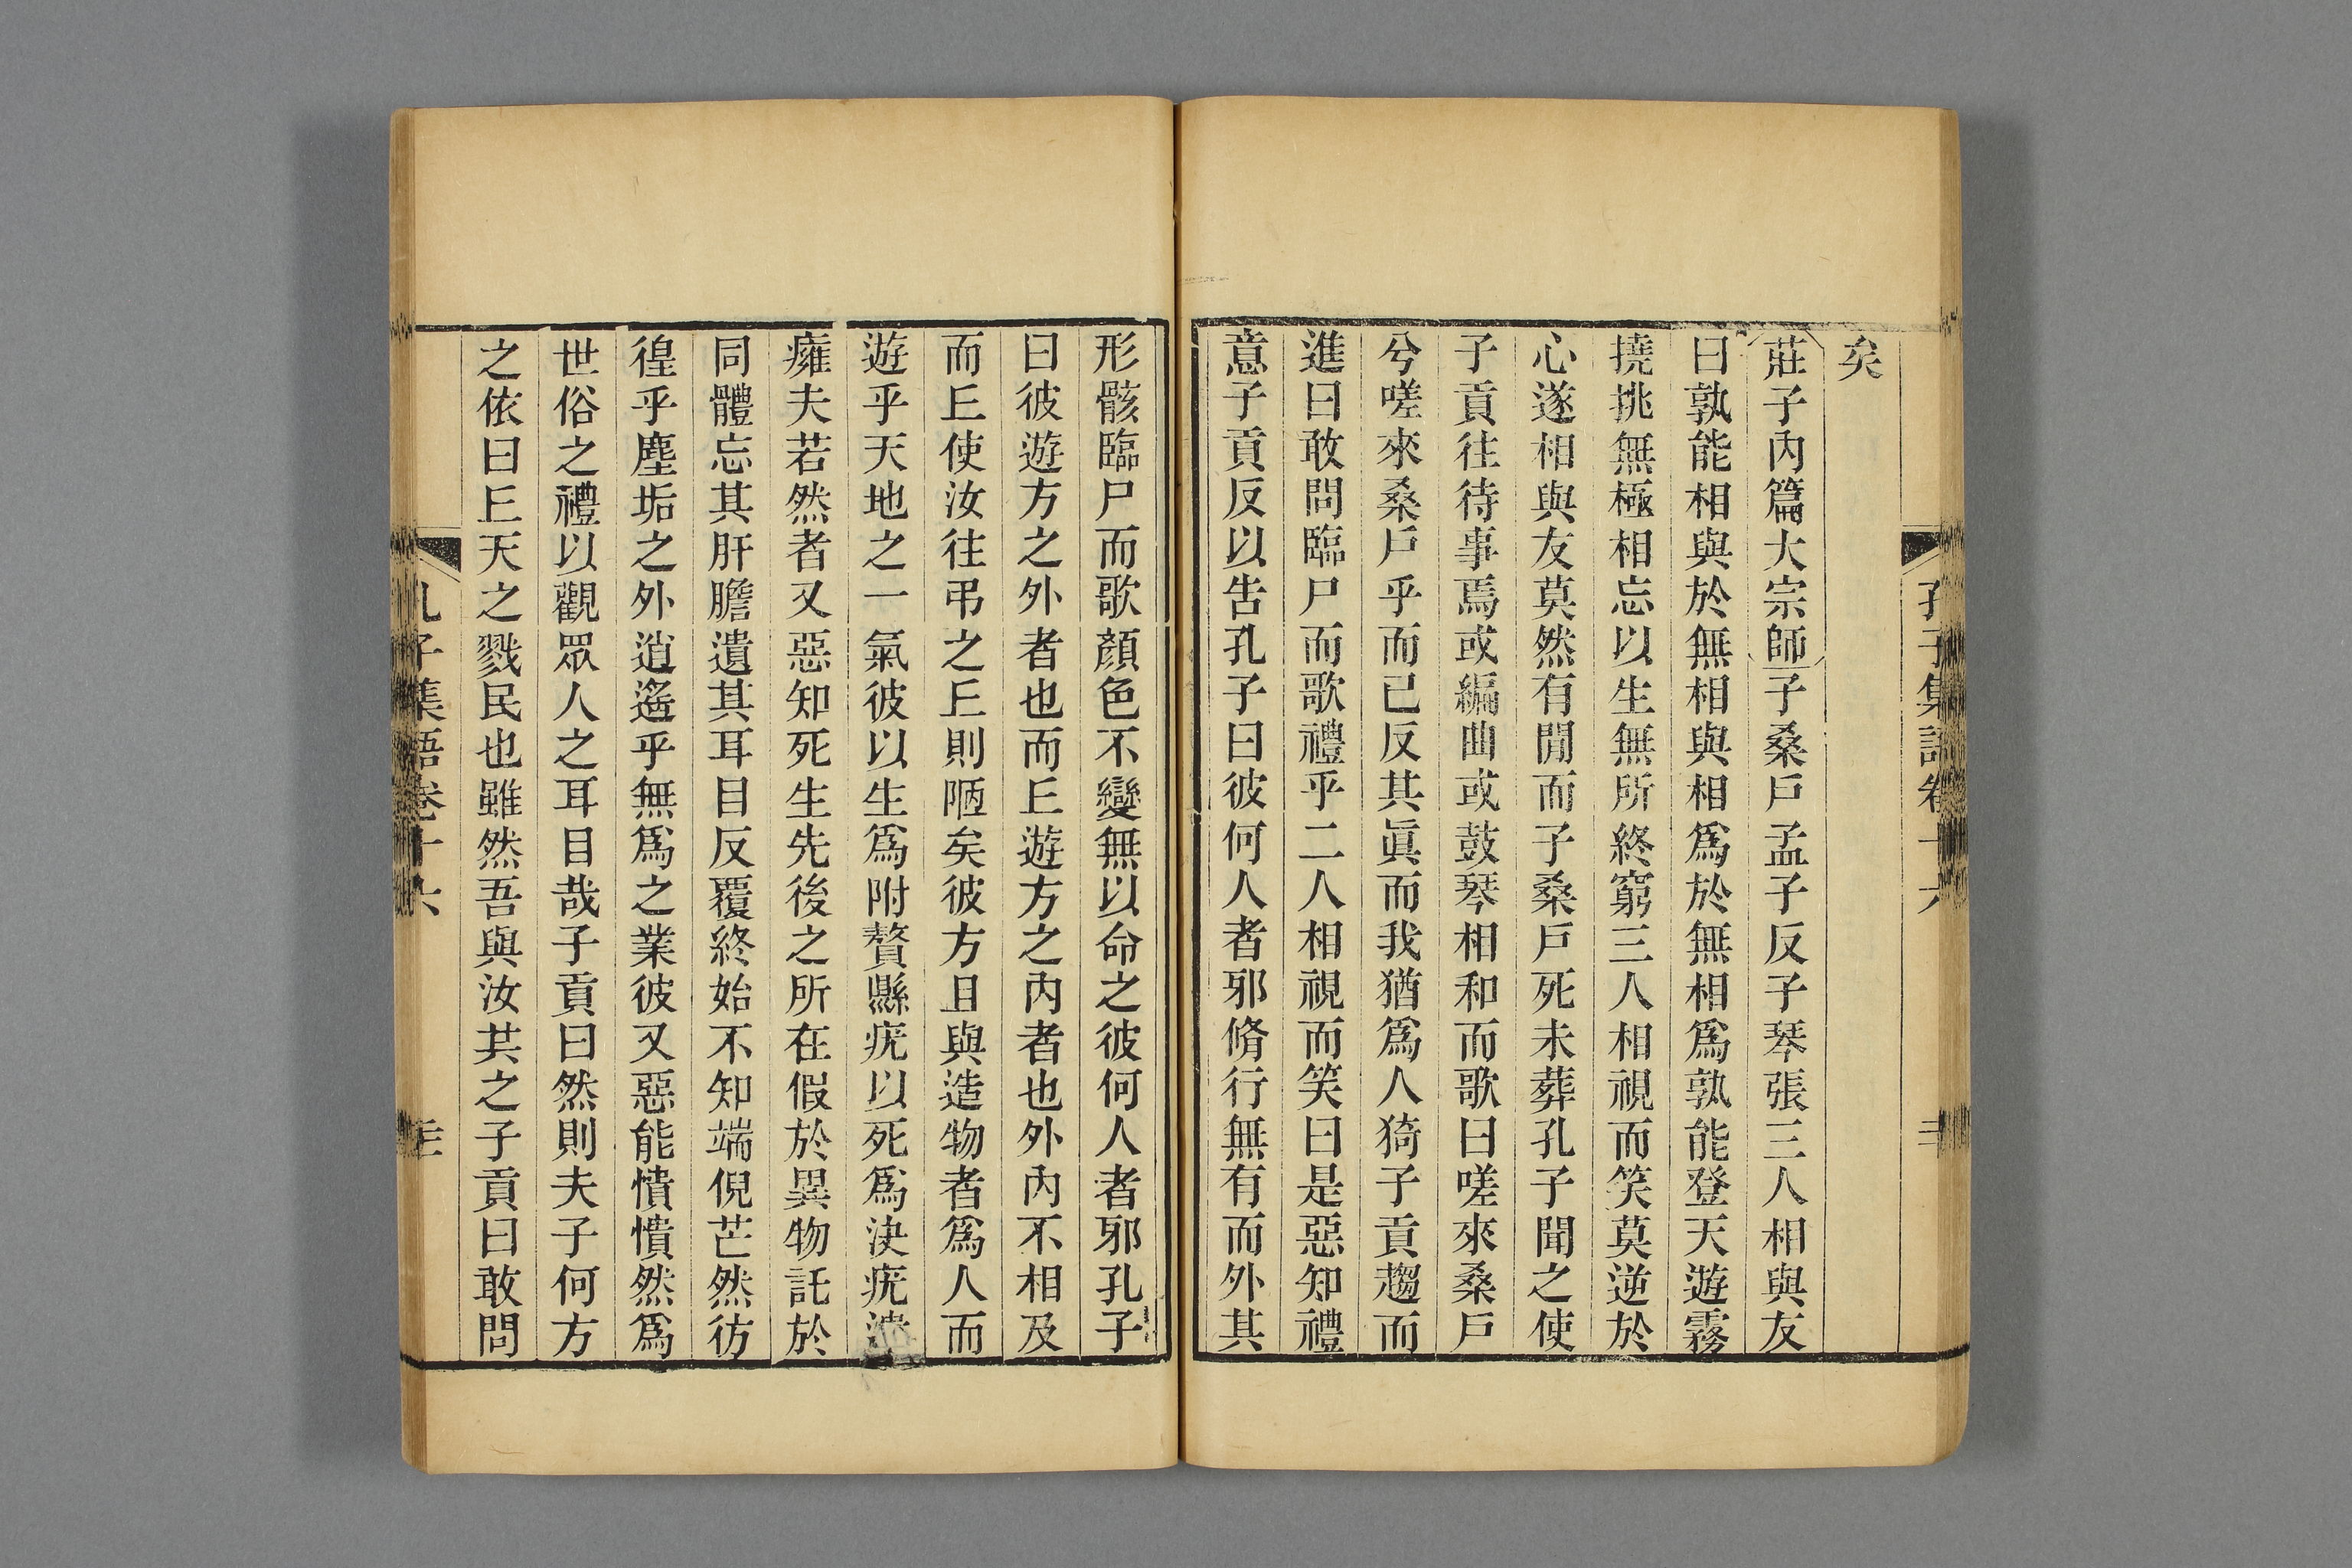 孔子集語卷十六
矣
莊子內篇大宗師子桑戶孟子反子琴張三人相與友
曰孰能相與於無相與相爲於無相爲孰能登天遊霧
撓挑無極相忘以生無所終窮三人相視而笑莫逆於
心遂相與友莫然有閒而子桑戶死未葬孔子聞之使
子貢往待事焉或編曲或鼓琴相和而歌曰嗟來桑戶
兮嗟來桑戶乎而已反其眞而我猶爲人猗子貢趨而
進曰敢問臨尸而歌禮乎二人相視而笑曰是惡知禮
意子貢反以告孔子曰彼何人者邪脩行無有而外其
形骸臨尸而歌顏色不變無以命之彼何人者邪孔子
曰彼遊方之外者也而𠀉遊方之內者也外內不相及
而𠀉使汝往弔之𠀉則陋矣彼方且與造物者爲人而
遊乎天地之一氣彼以生爲附贅縣疣以死爲決疣潰
癰夫若然者又惡知死生先後之所在假於異物託於
同體忘其肝膽遺其耳目反覆終始不知端倪芒然彷
徨乎塵垢之外逍遙乎無爲之業彼又惡能憒憒然爲
世俗之禮以觀眾人之耳目哉子貢曰然則夫子何方
之依曰𠀉天之戮民也雖然吾與汝共之子貢曰敢問
孔子集語卷十六